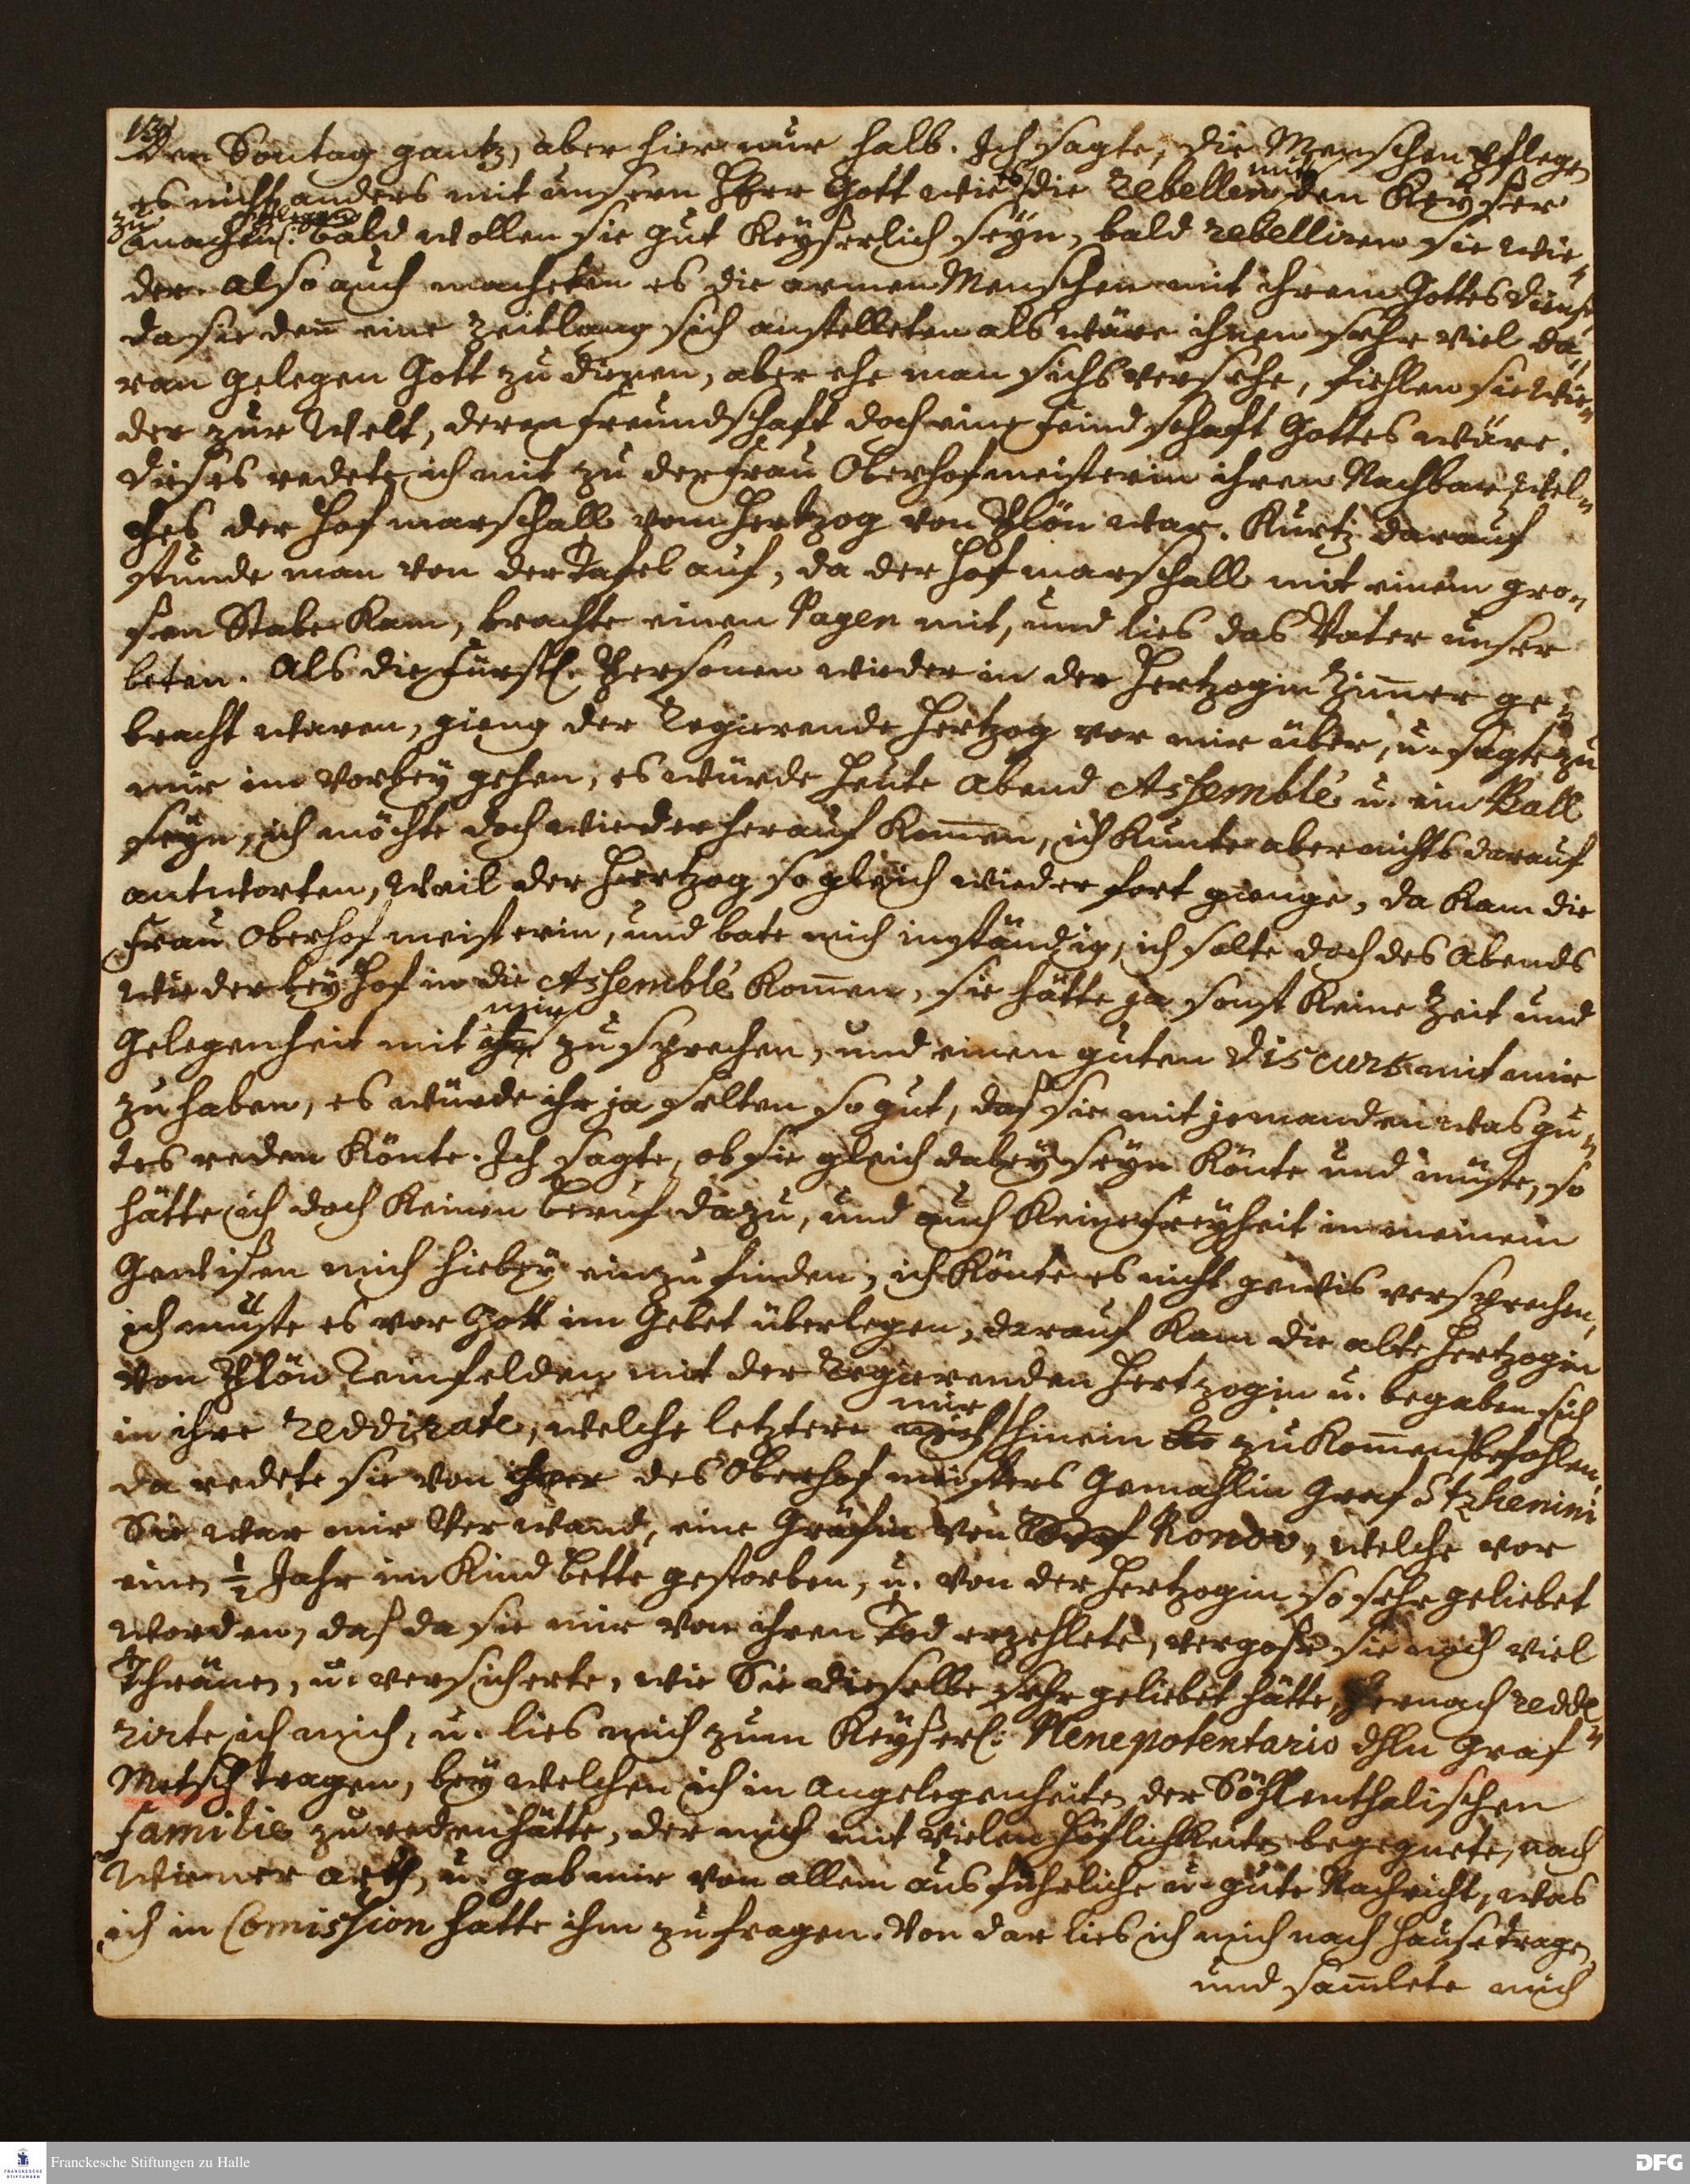 den Sontag gantz, aber hier nur halb. Ich sagte, die Menschen pflegen
es nicht anders mit unsern HErr Gott wie es die Rebellen mit den Keyser
zu machen pflegen: bald wollen sie gut Keyserlich seyn, bald rebelliren sie wie-
der. also auch macheten es die armen Menschen mit ihrem Gottesdienst,
da sie deñ eine Zeitlang sich anstelleten als wäre ihnen sehr viel da-
ran gelegen Gott zu dienen, aber ehe man sichs versehe, fiehlen sie wie-
der zur Welt, deren freundschaft doch eine feindschaft Gottes wäre.
dieses redete ich mit zu der frau Oberhofmeisterin ihren Nachbar, wel-
ches der Hofmarschall vom Hertzog von Plön war. Kurtz darauf
stunde man von der Tafel auf, da der Hofmarschall mit einem gro-
sen Stabe kam, brachte einen Pagen mit, und lies das Vater unser
beten. Als die fürstl. Personen wieder in der Hertzogin Zim̃er ge-
bracht waren, gieng der Regierende Hertzog vor mir über, u. sagte zu
mir im vorbey gehen, es würde heute Abend Assemblé u. ein Ball
seyn, ich möchte doch wieder herauf kom̃en, ich kunte aber nichts darauf
antworten, weil der Hertzog so gleich wieder fort gienge, da kam die
Frau Oberhofmeisterin, und bate mich inständig, ich solte doch des Abends
wieder bey Hof in die Assemblé kom̃en, sie hätte ja sonst keine Zeit und
Gelegenheit mit mir zu sprechen, und einen guten Discurs mit mir
zu haben, es würde ihr ja selten so gut, daß sie mit jemanden was gu-
tes reden könte. Ich sagte, ob sie gleich dabey seyn könte und müste, so
hätte ich doch keinen beruf dazu, und auch keine freyheit in meinem
Gewißen mich hiebey einzufinden, ich könte es nicht gewis versprechen,
ich müste es vor Gott im Gebet überlegen, darauf kam die alte Hertzogin
von Plön Reinfelden mit der Regierenden Hertzogin u. begaben sich
in ihre Reddirate, welche letztere mir hinein zu kom̃en befohlen,
da redete sie von des Oberhofmeisters Gemahlin Graf
Sie war mir Verwand, eine Gräfin von Ronov, welche vor
einen ½ Jahr im Kindbette gestorben, u. von der Hertzogin so sehr geliebet
worden, daß da sie mir von ihren Tod erzehlete, vergoße sie noch viel
Thränen, u. versicherte, wie Sie dieselbe sehr geliebet hätte, hernach redde-
rirte ich mich, u. lies mich zum Keyserl: Plenepotentario Graf
Metsch tragen, bey welchen ich in Angelegenheiten der Söhlenthalischen
Familie zu reden hätte, der mich mit vielen Höflichkeiten begegnete, nach
Wiener arth, u. gab mir von allem ausführliche u. gute Nachricht, was
ich in Comission hatte ihm zu fragen. Von dar lies ich mich nach Hause tragen,
und sam̃lete mich
Franckesche Stiftungen zu Halle
FRANCKESCHE STIFTUNGEN
DFG